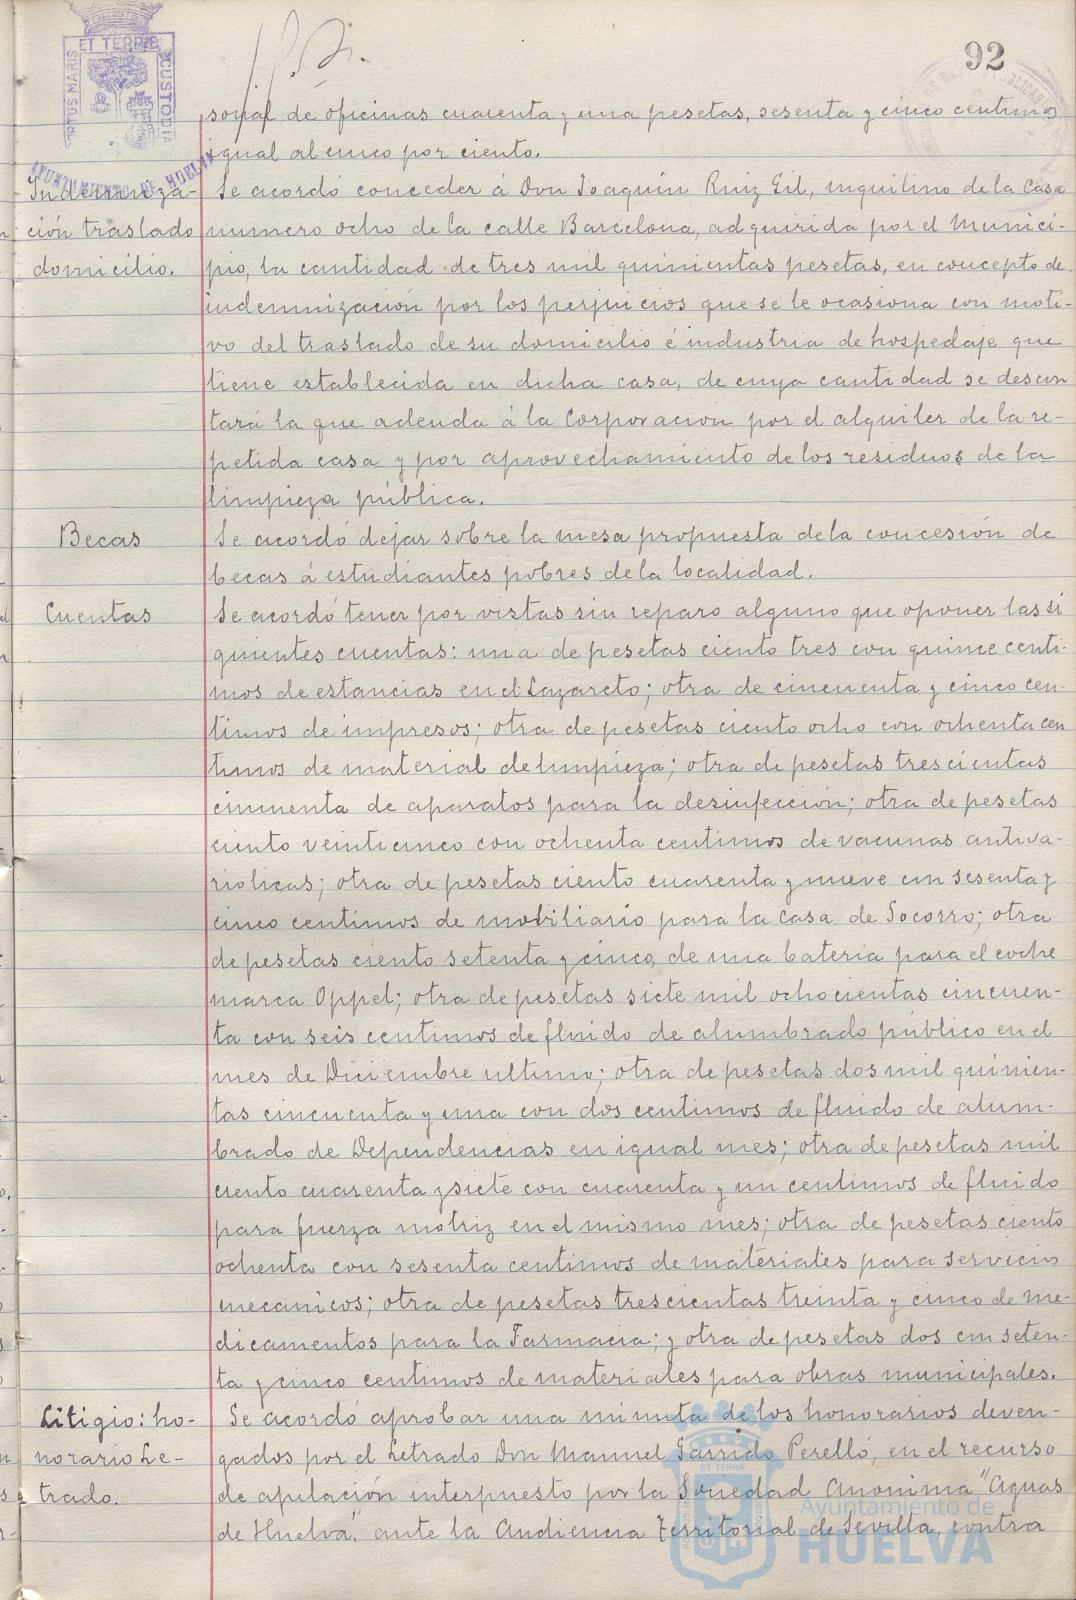 92
PORTUS MARIS ET TERRAE CUSTODIA
AYUNTAMIENTO DE HUELVA
sonal de oficinas cuarenta y una pesetas, sesenta y cinco centimos
igual al cinco por ciento.
Indemniza- Se acordó conceder á Don Joaquín Ruiz Gil, inquilino de la Casa
ción traslado numero ocho de la calle Barcelona, adquirida por el Munici-
domicilio. pio, la cantidad de tres mil quinientas pesetas, en concepto de
indemnización por los perjuicios que se le ocasiona con moti-
vo del traslado de su domicilio é industria de hospedaje que
tiene establecida en dicha casa, de cuya cantidad se descon
tará la que adeuda á la Corporación por el alquiler de la re-
petida casa y por aprovechamiento de los residuos de la
limpieza pública.
Becas Se acordó dejar sobre la mesa propuesta de la concesión de
becas á estudiantes pobres de la localidad.
Cuentas Se acordó tener por vistas sin reparo alguno que oponer las si
guientes cuentas: una de pesetas ciento tres con quince centi-
mos de estancias en el Lazareto; otra de cincuenta y cinco cen-
timos de impresos; otra de pesetas ciento ocho con ochenta cen
timos de material de limpieza; otra de pesetas trescientas
cincuenta de aparatos para la desinfección; otra de pesetas
ciento veinticinco con ochenta centimos de vacunas antiva-
riolicas; otra de pesetas ciento cuarenta y nueve con sesenta y
cinco centimos de mobiliario para la Casa de Socorro; otra
de pesetas ciento setenta y cinco, de una bateria para el coche
marca Oppel; otra de pesetas siete mil ochocientas cincuen-
ta con seis centimos de fluido de alumbrado público en el
mes de Diciembre ultimo; otra de pesetas dos mil quinien-
tas cincuenta y una con dos centimos de fluido de alum-
brado de Dependencias en igual mes; otra de pesetas mil
ciento cuarenta y siete con cuarenta y un centimos de fluido
para fuerza motriz en el mismo mes; otra de pesetas ciento
ochenta con sesenta centimos de materiales para servicios
mecanicos; otra de pesetas trescientas treinta y cinco de me-
dicamentos para la Farmacia; y otra de pesetas dos con seten-
ta y cinco centimos de materiales para obras municipales.
Litigio: ho- Se acordó aprobar una minuta de los honorarios deven-
norario Le- gados por el Letrado Don Manuel Garrido Perelló, en el recurso
trado. de apelación interpuesto por la Sociedad Anonima "Aguas
de Huelva", ante la Audiencia Territorial de Sevilla, contra
Ayuntamiento de
HUELVA